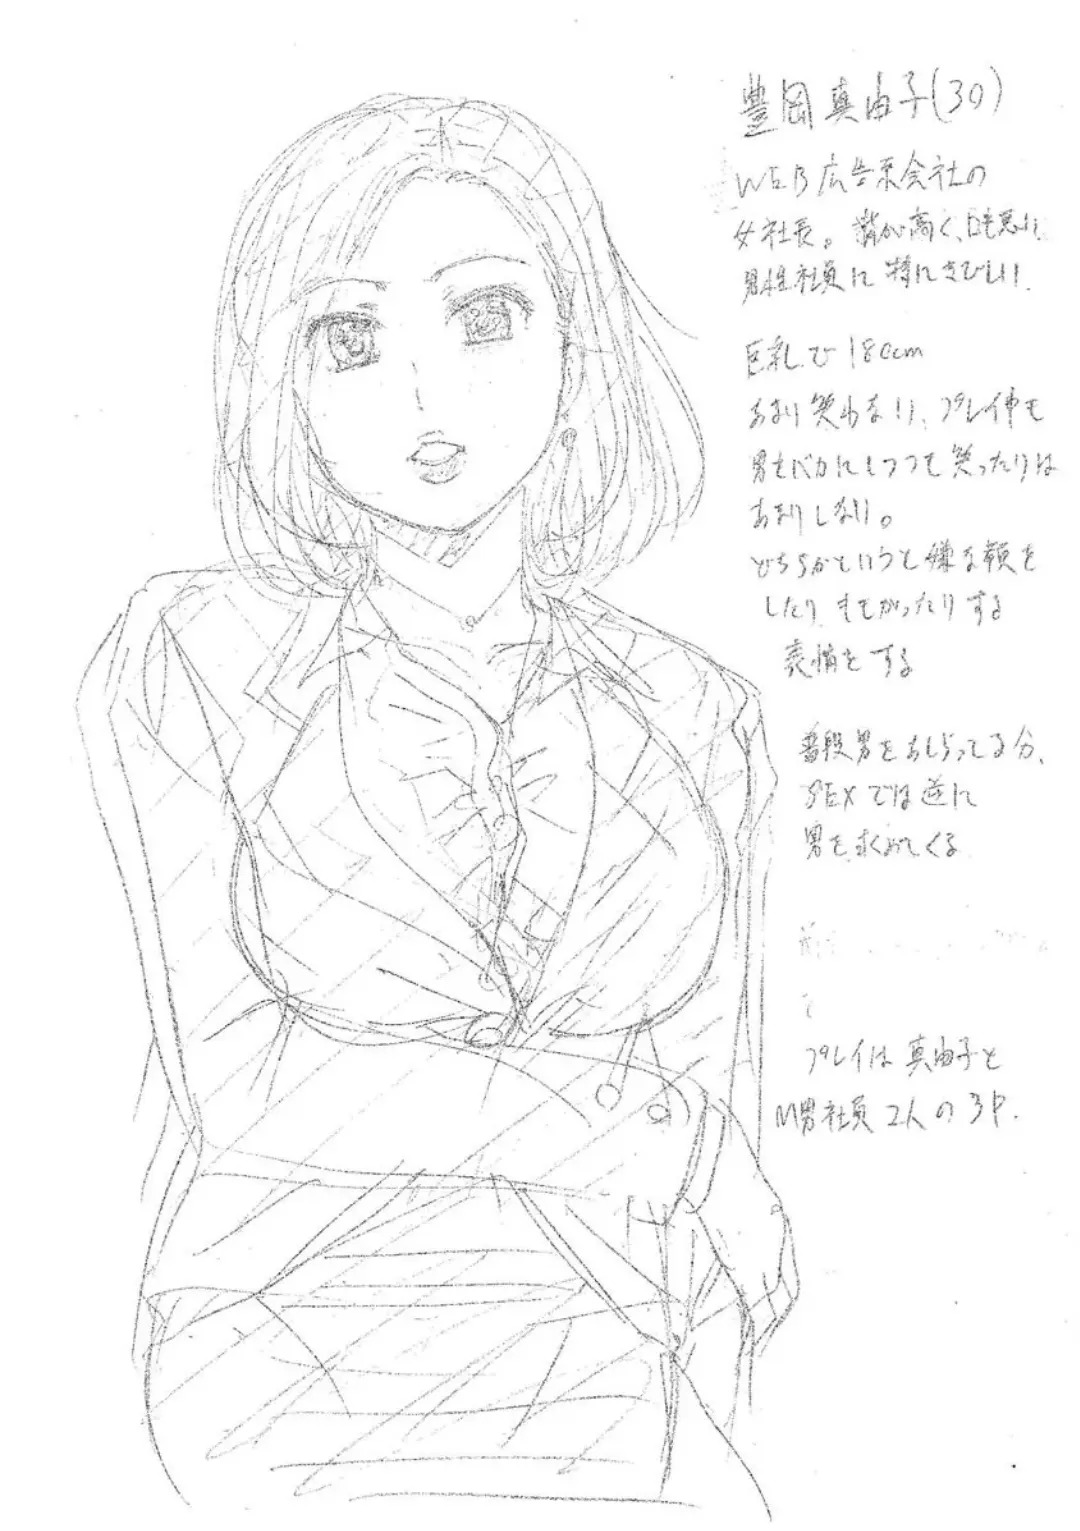 豊岡真由子(30)
WEB広告系会社の
女社長。背が高く、口も悪い、
男性社員に特にきびしい
巨乳で180cm
あまり笑わない、プレイ中も
男をバカにしつつも笑ったりは
あまりしない。
どちらかというと嫌な顔を
したりもてがったりする
表情をする
普段男をあしらってる分、
SEXでは逆に
男を求めてくる
プレイは真由子と
M男社員2人の3P.